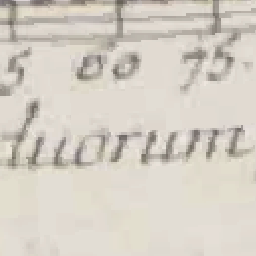 5 60 75.
duorum